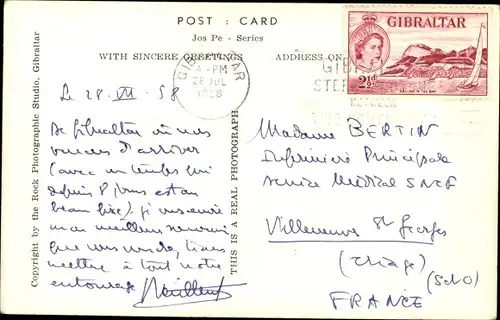 POST : CARD
Jos Pe - Series
WITH SINCERE GREETINGS
ADDRESS ON
GIBRALTAR
4 - PM
28 JUL
1958
GIBRALTAR
2½d
Copyright by the Rock Photographic Studio, Gibraltar
THIS IS A REAL PHOTOGRAPH
Le 28 VII 58
De Gibraltar où nous
venons d'arriver
(avec un temps qui
depuis 8 jours est au
beau fixe), je vous envoie
mon meilleur souvenir
que vous voudrez, transmettre
à tout votre
entourage
Madame BERTIN
Infirmière Principale
Service Médical SNCF
Villeneuve St Georges
(Triage)
(S&O)
FRANCE